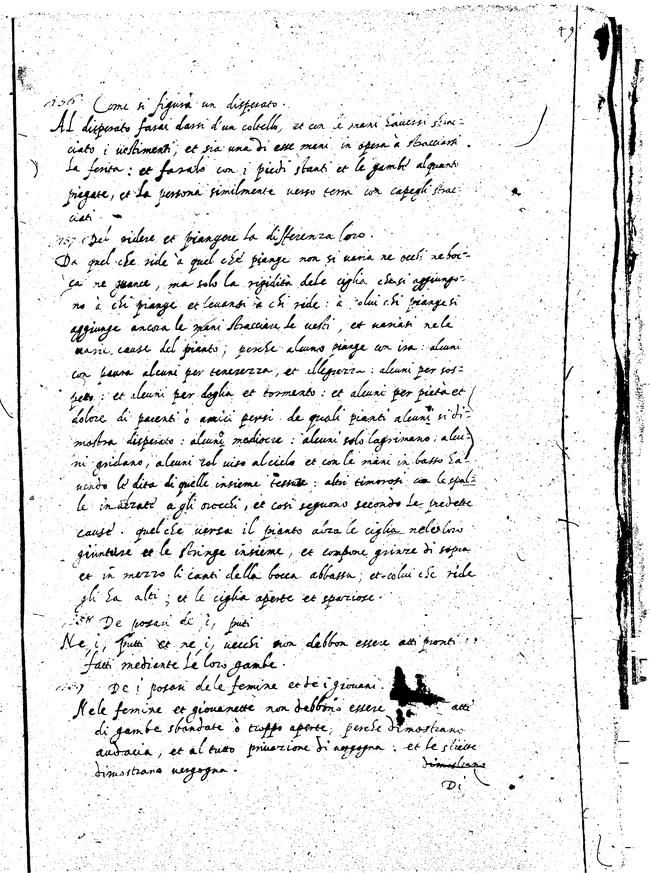 49
156 Come si figura un disperato.
Al disperato farai darsi d'un coltello, et con le mani haversi strac-
ciato i vestimenti, et sia una di esse mani in opera à stracciarsi
la ferita: et faralo con i piedi stanti et le gambe alquanto
piegate, et la persona similmente verso terra con capegli strac-
ciati.
157 Del ridere et piangere la differenza loro.
Da quel che ride à quel che piange non si varia ne occhi ne boc-
ca ne guance, ma solo la rigidità dele ciglia che si aggiungo-
no à chi piange et levansi à chi ride: à colui chi piange si
aggiunge ancora le mani stracciare le vesti, et variasi nele
varie cause del pianto; perche alcuno piange con ira: alcuni
con paura alcuni per tenerezza, et allegrezza: alcuni per sos-
petto: et alcuni per doglia et tormento: et alcuni per pietà et
dolore di parenti ò amici persi. de quali pianti alcuni si di-
mostra disperato: alcuni mediocre: alcuni solo lagrimano: alcu-
ni gridano, alcuni col viso al cielo et con le mani in basso ha-
vendo le dita di quelle insieme tessute: altri timorosi con le spal-
le inalzate agli orecchi, et così seguono secondo le predette
cause. quel che versa il pianto alza le ciglia nele loro
giunture et le stringe insieme, et compone grinze di sopra
et in mezzo li canti della bocca abbassa; et colui che ride
gli ha alti; et le ciglia aperte et spaziose.
158 De posari de i, putti
Ne, i, putti et ne i, vecchi non debbon essere atti pronti
fatti mediante le loro gambe.
159 De i posari dele femine et de i giovani.
Nele femine et giovanette non debbono essere atti
di gambe sbandate ò troppo aperte, perche dimostrano
audacia, et al tutto privazione di vergogna: et le strette
dimostrano vergogna. dimostrano
Di